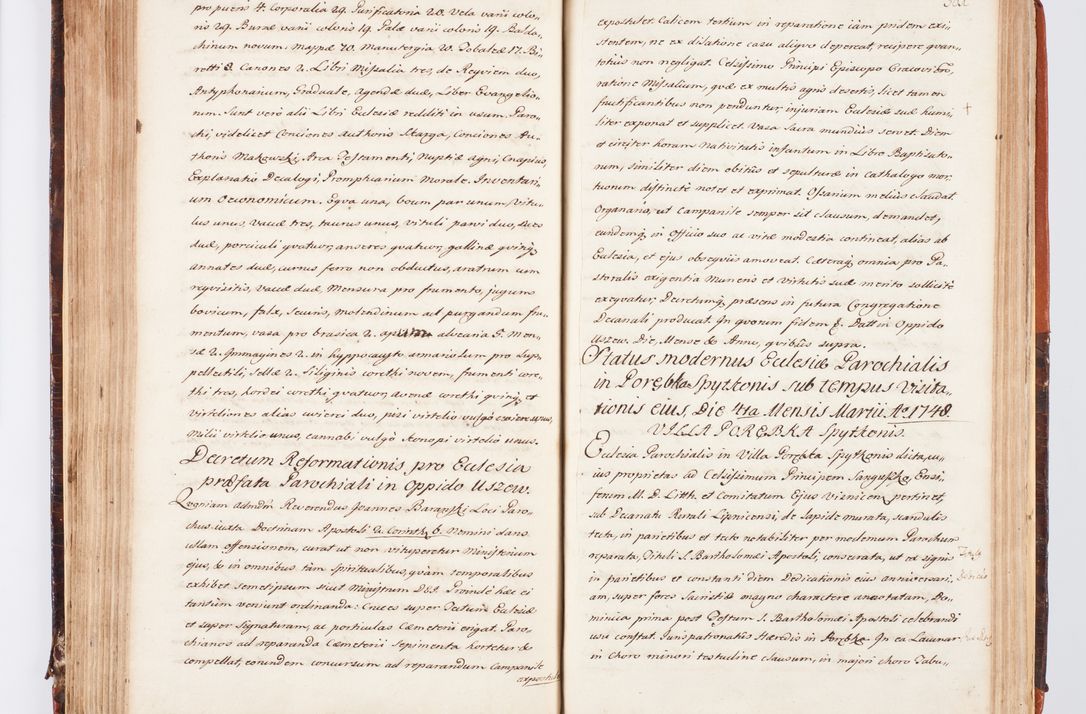 pro pueris 4. Corporalia 29. Purificatoria 20. Vela varii colo„
ris 29. Bursæ varii coloris 19. Palæ varii coloris 19. Balda„
chinum novum, Mappæ 70. Manutergia 20. Tobaleæ 17. Bi„
retti 2. Canones 2. Libri Missalia tres, de Reqviem duo,
Antyphonarium, Graduale, Agendæ duæ, Liber Evangelio„
rum. Sunt verò alii Libri Eclesiæ redditi in usum Paro„
chi, videlicet Conciones Authoris Skarga, Conciones Au„
thoris Makowski, Arca Testamenti, Nuptiæ Agni, Cnapius,
Explanatio Decalogi, Promptuarium Morale. Inventari„
um Oeconomicum. Eqva una, boum par unum, Vitu„
lus unus, Vaccæ tres, taurus unus, vituli parvi duo, sues
duæ, porciuli qvatuor, anseres qvatuor, gallinæ qvinq;
annates duæ, currus ferro non obductus, aratrum cum
reqvisitis, Vaccæ duæ, Mensura pro frumento, jugum
bovicum, falx, securis, molendinum ad purgandum fru„
mentum, vasa pro brasica 2. alvearia 5. Men„
sæ 2. Immagines 2. in hyppocausto armariolum pro sup„
pellectili, sellæ 2. Siliginis corethi novem, frumenti core„
thi tres, hordei corethi qvatuor, avenæ corethi qvinq; et
virteliones alias cwierci duo, pisi virtelio vulgò cwierc unus,
Milii virtelio unus, cannabi vulgò Konopi virtelio unus.
Decretum Reformationis pro Eclesia
præfata Parochiali in Oppido Uszew.
Qvoniam Admdm Reverendus Joannes Baranski Loci Paro„
chus iuxta Doctrinam Apostoli 2. Corinth. 6. Nemini dans
ullam offensionem, curat ut non vituperetur Ministerium
ejus, & in omnibus tàm spiritualibus, qvàm temporalibus
exhibet semetipsum sicut Ministrum DEI. Proindè hæc ei
tantùm veniunt ordinanda: Cruces super Tectum Eclesiæ
et super signaturam, ac porticulas Cæmeterii erigat. Paro„
chianos ad reparanda Cæmeterii sepimenta hortetur &
compellat, eorundem concursum ad reparandum Campanile
expostulet
expostulet. Calicem tertium in reparatione iàm pridem exi„
stentem, ne ex dilatione casu aliqvo depereat, recipere qvan„
totiùs non negligat. Celsissimo Principi Episcopo Cracovi
ratione Missalium, qvæ ex multis agris desertis, licet tamen
fructificantibus non penduntur, injuriam Eclesiæ suæ humi„
liter exponat et supplicet. Vasa Sacra mundiùs servet. Diem
et circiter horam Nativitatis infantum in Libro Baptisato„
rum, similiter diem obitûs et sepulturæ in Cathalogo mor„
tuorum distinctè notet et exprimat. Ossarium meliùs claudat.
Organario, ut Campanile semper sit clausum, demandet,
eundemq; in officio suo ac vitæ modestia contineat, aliàs ab
Eclesia, et ejus obseqviis amoveat. Cæteraq; omnia pro Pa„
storalis exigentia Muneris et Virtutis suæ merito sollicitè
exeqvatur, Decretumq; præsens in futura Congregatione
Decanali producat. In qvorum fidem &. Datt in Oppido
Uszew. Die, Mense & Anno, qvibus supra.
Status modernus Eclesiæ Parochialis
in Porębka Spytkonis sub tempus Visita„
tionis eius, Die 4ta Mensis Martii. Ao 1748.
VILLA PORĘBKA Spytkonis.
Eclesia Parochialis in Villa Porębka Spytkonis dicta, cu„
ius proprietas ad Celsissimum Principem Sangusko, Ensi„
ferum M. D. Litth. et Comitatum Ejus Visnicen. pertinet,
sub Decanatu Rurali Lipnicensi, de lapide murata, scandulis
tecta, in parietibus et tecto notabiliter per modernum Parochum
reparata, Tituli S. Bartholomæi Apostoli, consecrata, ut ex signis
in parietibus et constanti diem Dedicationis eius anniversari„
am, super fores Sacristiæ magno charactere annotatum, Do„
minica prima post Festum S. Bartholomæi Apostoli celebrandi
usu constat. Jurispatronatûs Hæredis in Porębka. In ea Laurear
in choro minori testudine clausum, in majori choro Tabu„